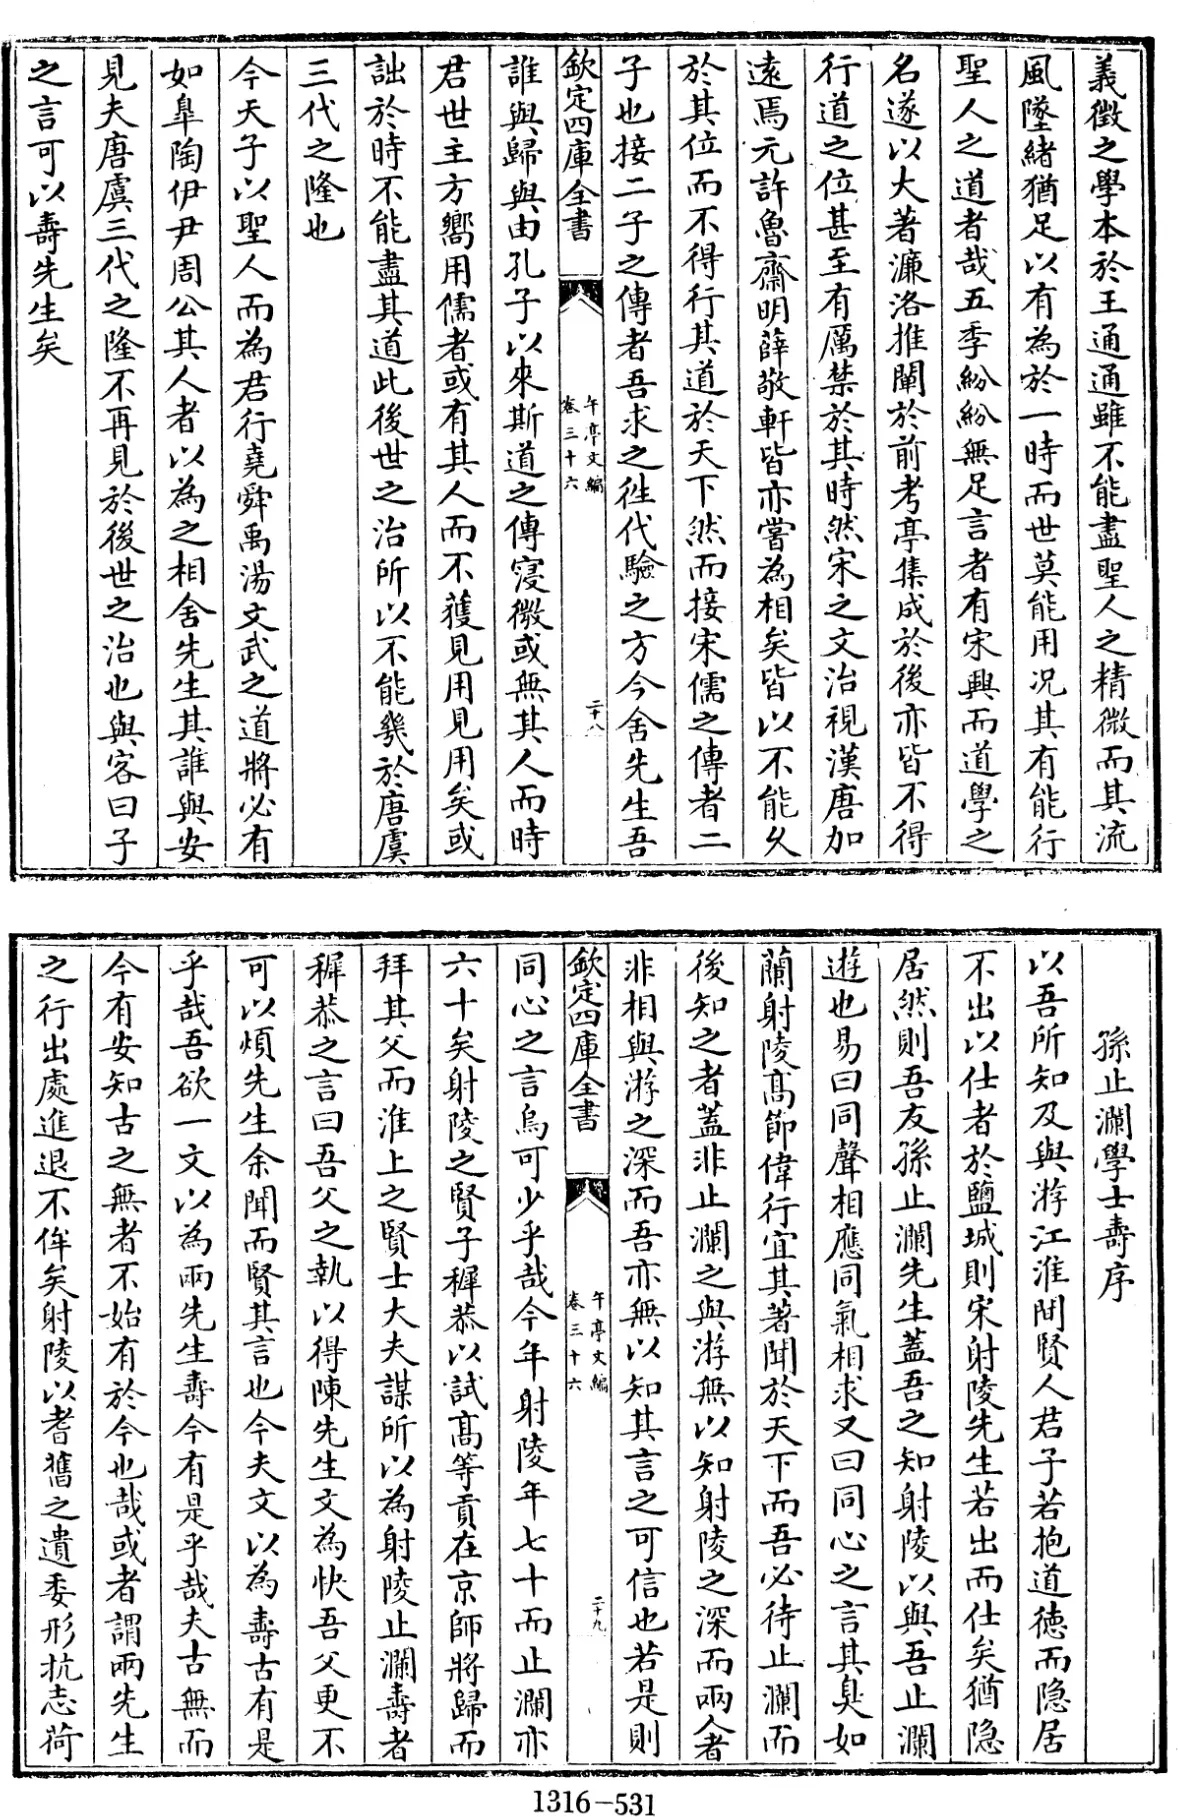 義徵之學本於王通通雖不能盡聖人之精微而其流
風墜緒猶足以有為於一時而世莫能用况其有能行
聖人之道者哉五季紛紛無足言者有宋興而道學之
名遂以大著濂洛推闡於前考亭集成於後亦皆不得
行道之位甚至有厲禁於其時然宋之文治視漢唐加
逺焉元許魯齋明薛敬軒皆亦嘗為相矣皆以不能久
於其位而不得行其道於天下然而接宋儒之傳者二
子也接二子之傳者吾求之徃代驗之方今舍先生吾
欽定四庫全書
午亭文編
卷三十六
二十八
誰與歸與由孔子以來斯道之傳寖微或無其人而時
君世主方嚮用儒者或有其人而不獲見用見用矣或
詘於時不能盡其道此後世之治所以不能幾於唐虞
三代之隆也
今天子以聖人而為君行堯舜禹湯文武之道將必有
如臯陶伊尹周公其人者以為之相舍先生其誰與安
見夫唐虞三代之隆不再見於後世之治也與客曰子
之言可以壽先生矣
孫止瀾學士壽序
以吾所知及與游江淮間賢人君子若抱道徳而隐居
不出以仕者於鹽城則宋射陵先生若出而仕矣猶隐
居然則吾友孫止瀾先生蓋吾之知射陵以與吾止瀾
遊也易曰同聲相應同氣相求又曰同心之言其臭如
蘭射陵髙節偉行宜其著聞於天下而吾必待止瀾而
後知之者蓋非止瀾之與游無以知射陵之深而兩人者
非相與游之深而吾亦無以知其言之可信也若是則
欽定四庫全書
午亭文編
卷三十六
二十九
同心之言烏可少乎哉今年射陵年七十而止瀾亦
六十矣射陵之賢子穉恭以試髙等貢在京師將歸而
拜其父而淮上之賢士大夫謀所以為射陵止瀾壽者
穉恭之言曰吾父之執以得陳先生文為快吾父更不
可以煩先生余聞而賢其言也今夫文以為壽古有是
乎哉吾欲一文以為兩先生壽今有是乎哉夫古無而
今有安知古之無者不始有於今也哉或者謂兩先生
之行出處進退不侔矣射陵以耆舊之遺委形抗志荷
1316-531